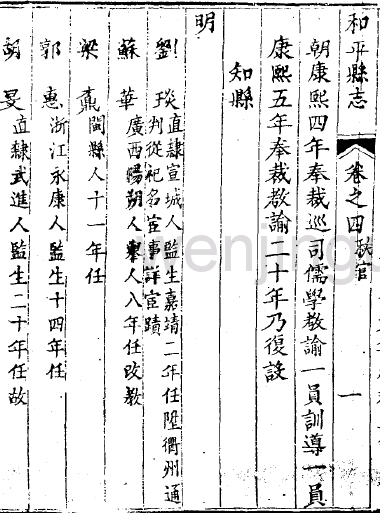 和平縣志
卷之四
秩官
一
朝康熙四年奉裁巡司儒學教諭一員訓導一員
康熙五年奉裁教諭二十年乃復設
知縣
明
劉琰直隸宣城人監生嘉靖二年任陞衢州通
判從祀名宦事詳宦蹟
蘇華廣西陽朔人舉人八年任改教
梁 閩縣人十一年任
郭惠浙江永康人監生十四年任
胡旻直隸武進人監生二十年任故
wenjing